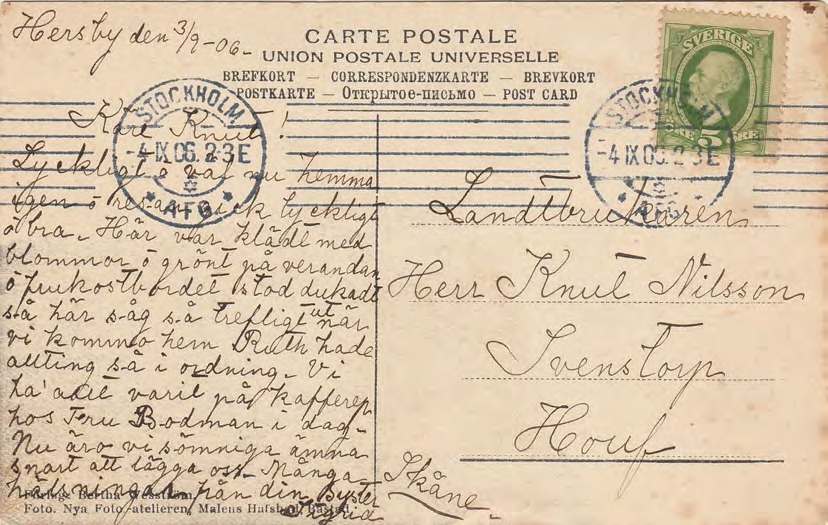 Hersby den 3/9-06-
CARTE POSTALE
UNION POSTALE UNIVERSELLE
BREFKORT — CORRESPONDENZKARTE — BREVKORT
POSTKARTE — Открытое-письмо — POST CARD
SVERIGE
5 ÖRE
STOCKHOLM
-4 IX 06. 2-3 E
AFG
STOCKHOLM
-4 IX 06. 2-3 E
Käre Knut!
Lyckligt o väl nu hemma
igen o resan gick lyckligt
o bra. Här var klädt med
blommor o grönt på verandan
o frukostbordet stod dukadt
så här såg så trefligt ut när
vi kommo hem Ruth hade
allting så i ordning. Vi
ha' varit på kafferep
hos Fru Bodman i dag-
Nu äro vi sömniga ämna
snart att lägga oss. Många
hälsningar från din Syster
Sigrid
Landtbrukaren
Herr Knut Nilsson
Svenstorp
Skåne.
Förlag: Bertha Wesström
Foto. Nya Foto-atelieren, Malens Hafsbad, Båstad